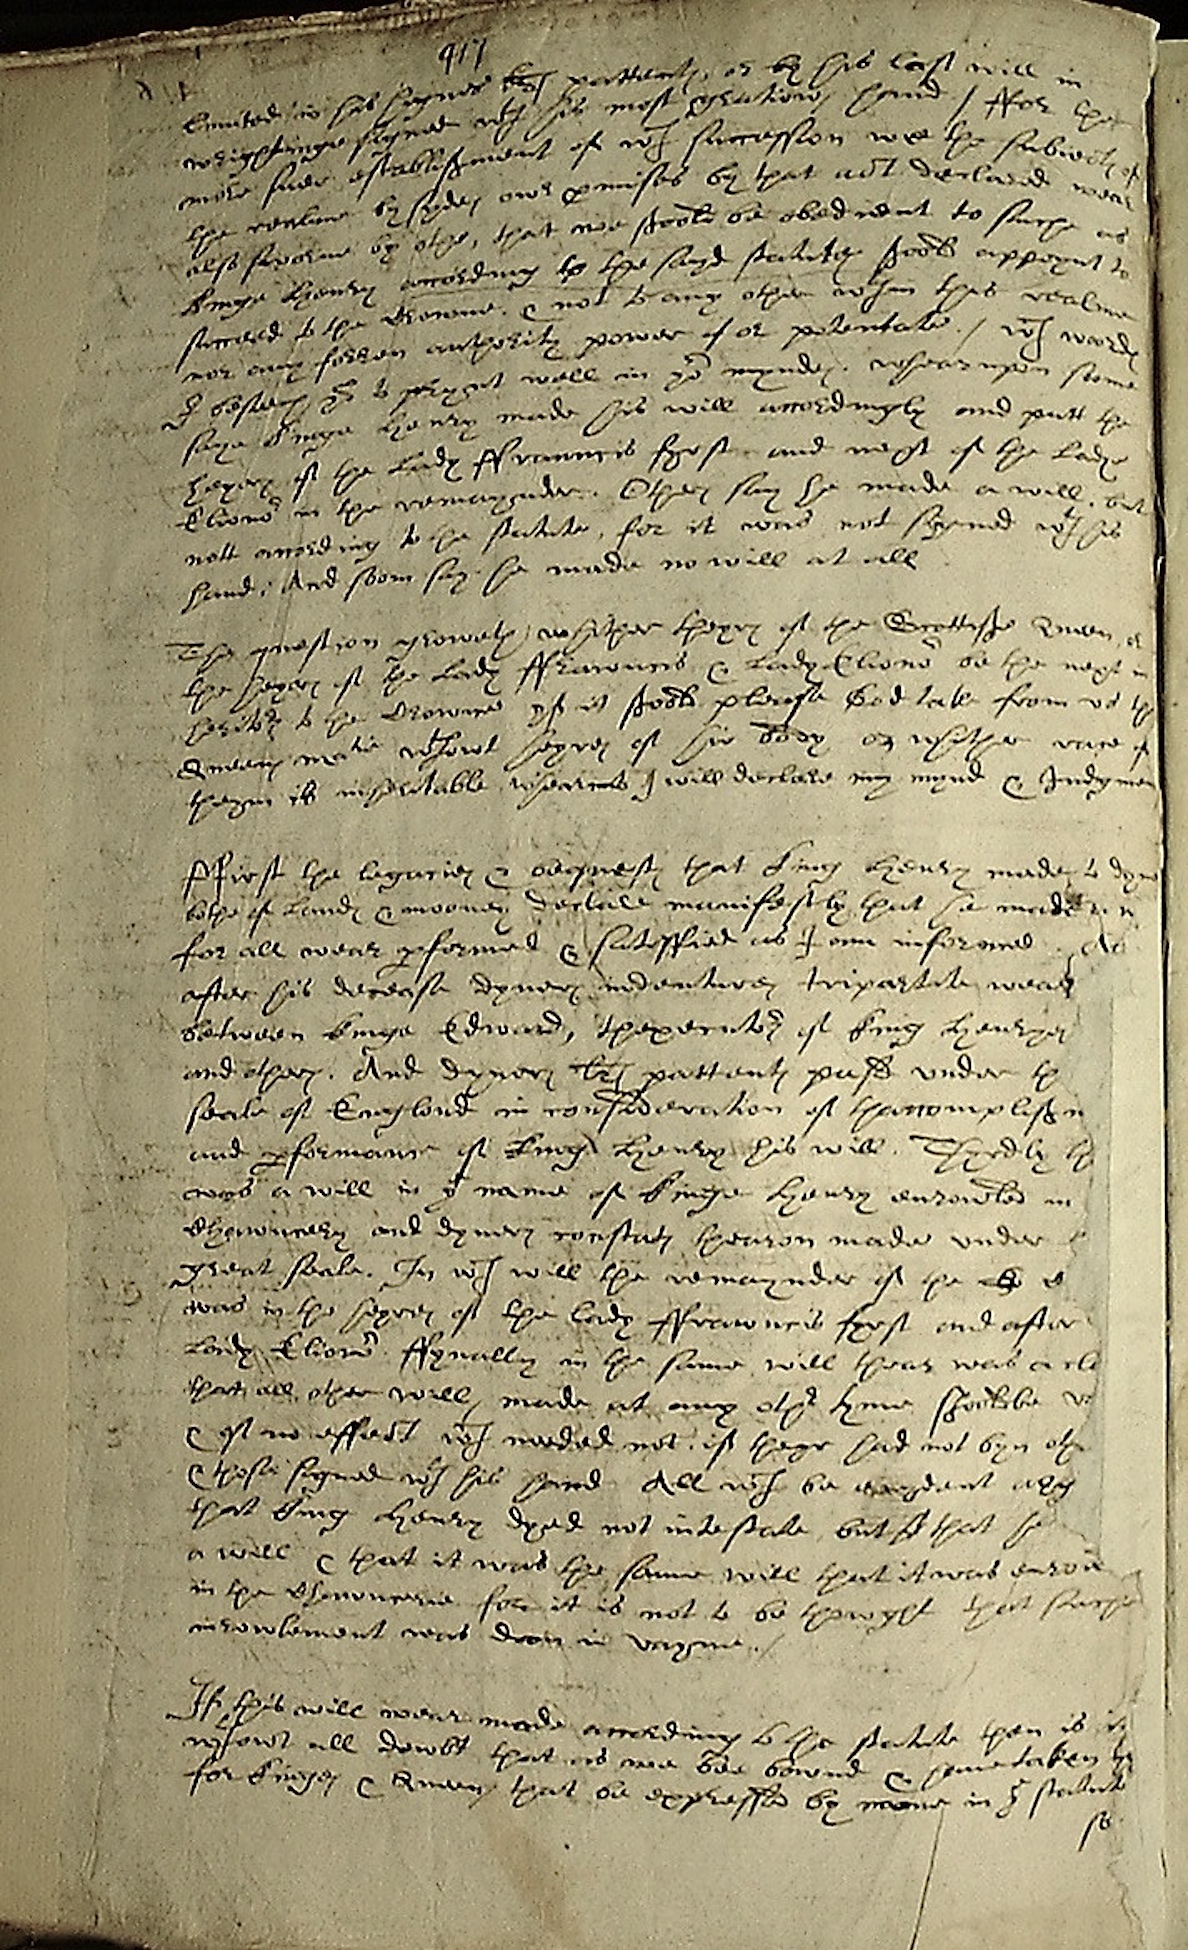 917
limited in his hygnes lres pattents, or by his last will in
wrightinge signed wth his most gratious hand / ffor the
more suer establishment of wch succession wee the subiects of
the realme bysydes owr pmises by that act declared wear
also sworne by othe, that we shoold be obedient to suche as
kinge Henry according to the sayd statutes shoold appoynt to
succeed to the Crowne. & not to any other wthin this realme
nor any forren authority power or potentate. / wch words
I beseech yow to prynt well in yor myndes. whearupon some
saye kinge Henry made his will accordingly and putt the
heyres of the Lady ffrauncis fyrst and next of the Lady
Elionor in the remaynder. Others say he made a will, but
nott according to the statute, for it was not sygned wth his
hand, And soom say he made no will at all

The question groweth, whither theyres of the Scottishe Queen, or
the heyres of the Lady ffrauncis & Lady Elionor be the next in
heritors to the Crowne yf it shoold please God take from us the
Queens matie wthowt heyres of hir body or whither race of
theym is inheritable whearein I will declare my mynd & Iudgmen

ffirst the legacies & bequests that king Henry made to dyve
bothe of Lands & mooney declare manifestly that he made a
for all wear pformed & satisffied as I am informed. An
after his decease dyvers indentures tripartite wear
between kinge Edward, thexecutors of king Henryes
and others. And dyvers lres pattents passd under th
seale of England in consideration of thaccomplishm
and pformance of king Henry his will. Thyrdly th
was a will in ye name of kinge Henry enrowled in
Chauncery and dyvers constats thearon made under
great seale. In wch will the remaynder of the C
was in the heyres of the lady ffrauncis fyrst and after
Lady Elionor. ffynally in the same will thear was a cla
that all other wills made at any other tyme shoold be v
& of no effect wch needed not if theyr had not byn oth
& those signed wth his hand All wch be evydent arg
that king Henry dyed not intestate, but that he
a will & that it was the same will that it was enrow
in the Chauncerie for it is not to be thowght that suche
inrowlement was doon in vayne. /

If this will wear made according to the statute then is it
wthowt all dowbt that as we bee bownd & have taken
for kinges & Queens that be expressed by name in ye statute
so